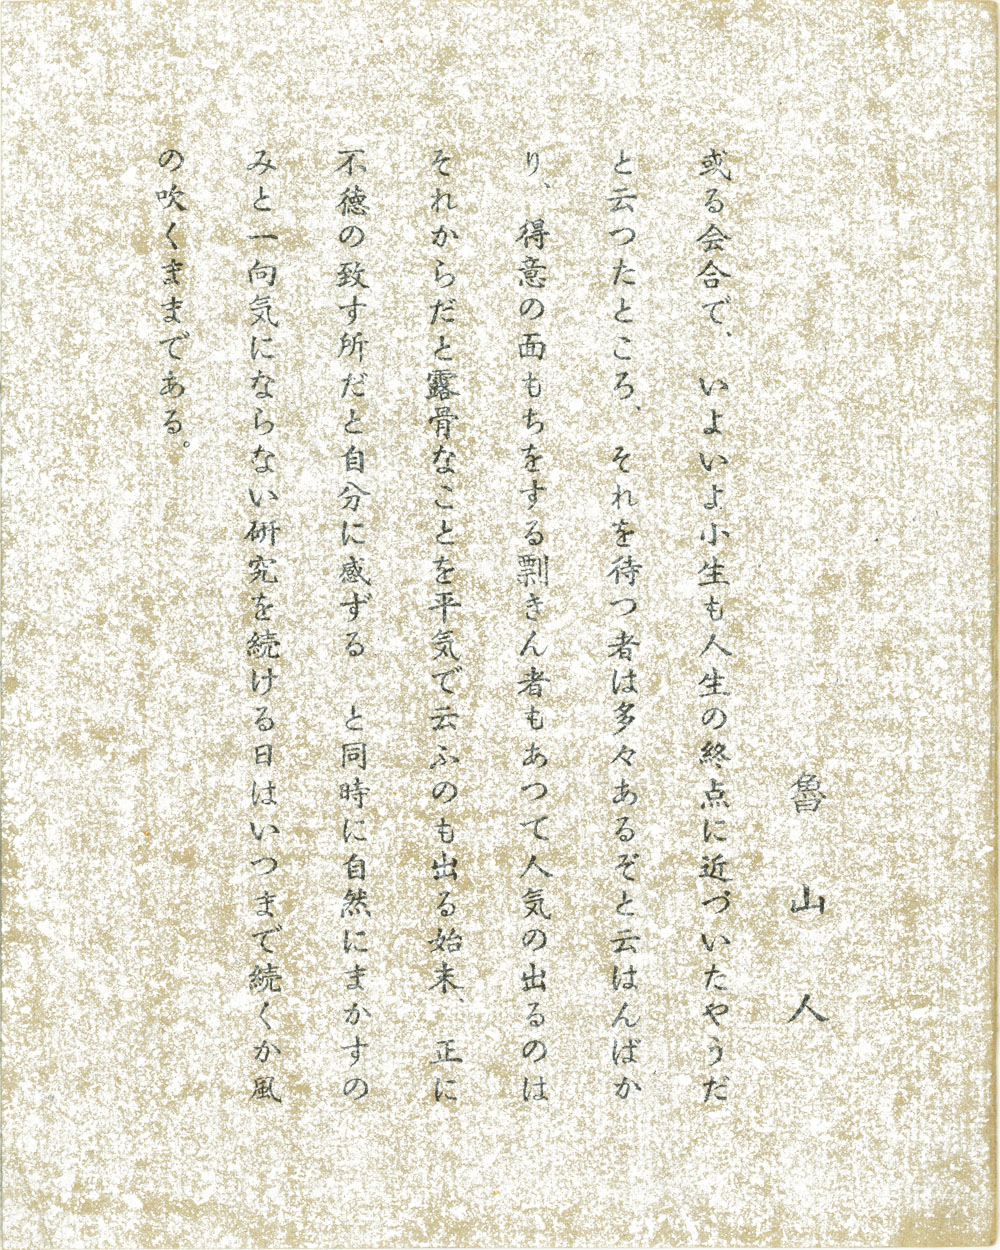 魯山人
或る会合で、いよいよ小生も人生の終点に近づいたやうだ
と云つたところ、それを待つ者は多々あるぞと云はんばか
り、得意の面もちをする剽きん者もあつて人気の出るのは
それからだと露骨なことを平気で云ふのも出る始末、正に
不徳の致す所だと自分に感ずる　と同時に自然にまかすの
みと一向気にならない研究を続ける日はいつまで続くか風
の吹くままである。